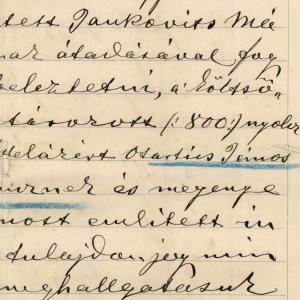 tett Jankovits Mé
nak átadásával fog
eleztetni, a költsö-
tározott (:800:) nyolcz
telárért Osartics János
urnak és megenge
most említett in
tulajdonjog min
meghallgatásuk